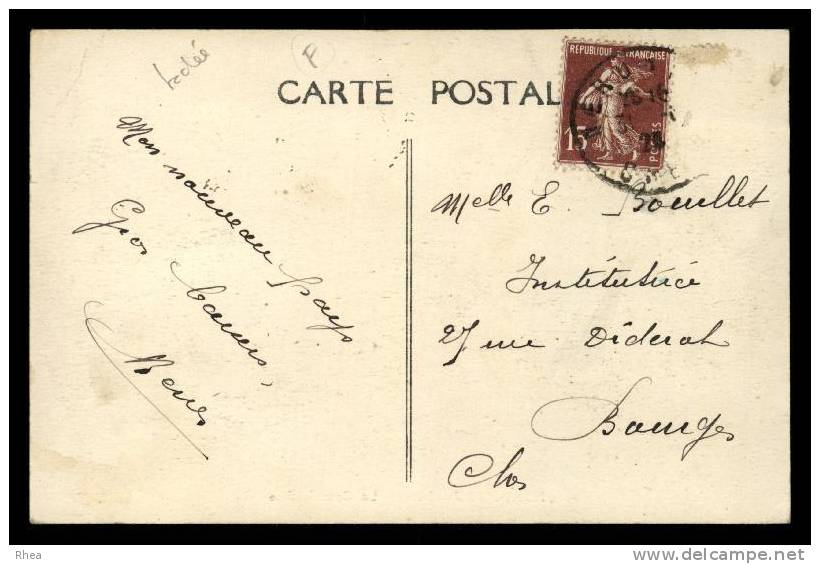 CARTE POSTALE
REPUBLIQUE FRANÇAISE
15
POSTES
Mon nouveau pays
Gros baisers,
Melle E. Boulllet
Institutrice
27 rue Diderot
Bourges
Cher
Rhea
www.delcampe.net